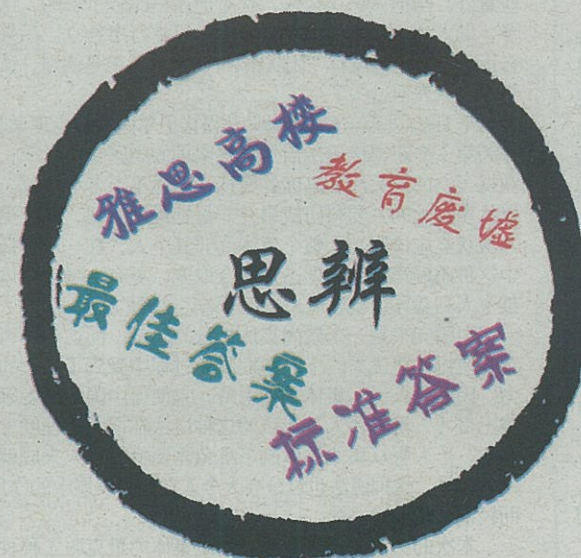 雅思高校
教育废墟
思辨
最佳答案
标准答案